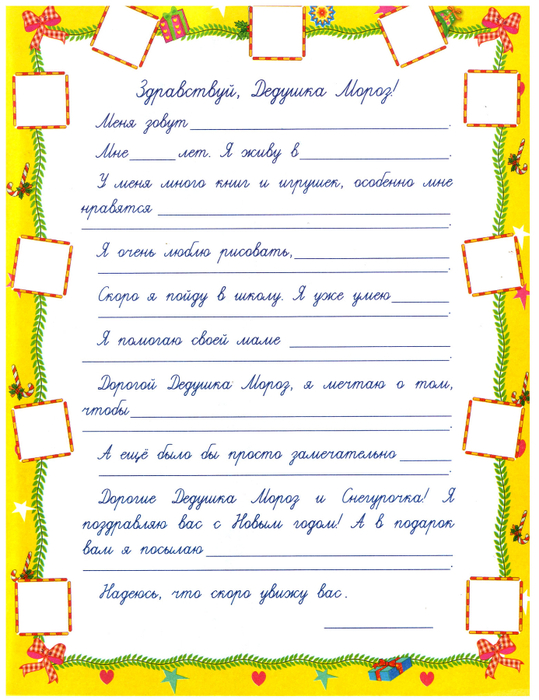 Здравствуй, Дедушка Мороз!
Меня зовут ____________________.
Мне ____ лет. Я живу в ____________.
У меня много книг и игрушек, особенно мне
нравятся ____________________
____________________.
Я очень люблю рисовать, ____________
____________________.
Скоро я пойду в школу. Я уже умею ______
____________________.
Я помогаю своей маме ____________
____________________.
Дорогой Дедушка Мороз, я мечтаю о том,
чтобы ____________________
____________________.
А ещё было бы просто замечательно ______
____________________.
Дорогие Дедушка Мороз и Снегурочка! Я
поздравляю вас с Новым годом! А в подарок
вам я посылаю ____________________
____________________.
Надеюсь, что скоро увижу вас.
____________